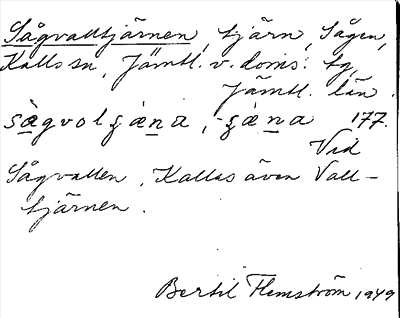 Sågvalltjärnen, tjärn, Sågen,
Kalls sn, Jämtl. v. doms. tg,
Jämtl. län.
177.
Vid
Sågvallen. Kallas även Vall-
tjärnen.
Bertil Flemström 1949